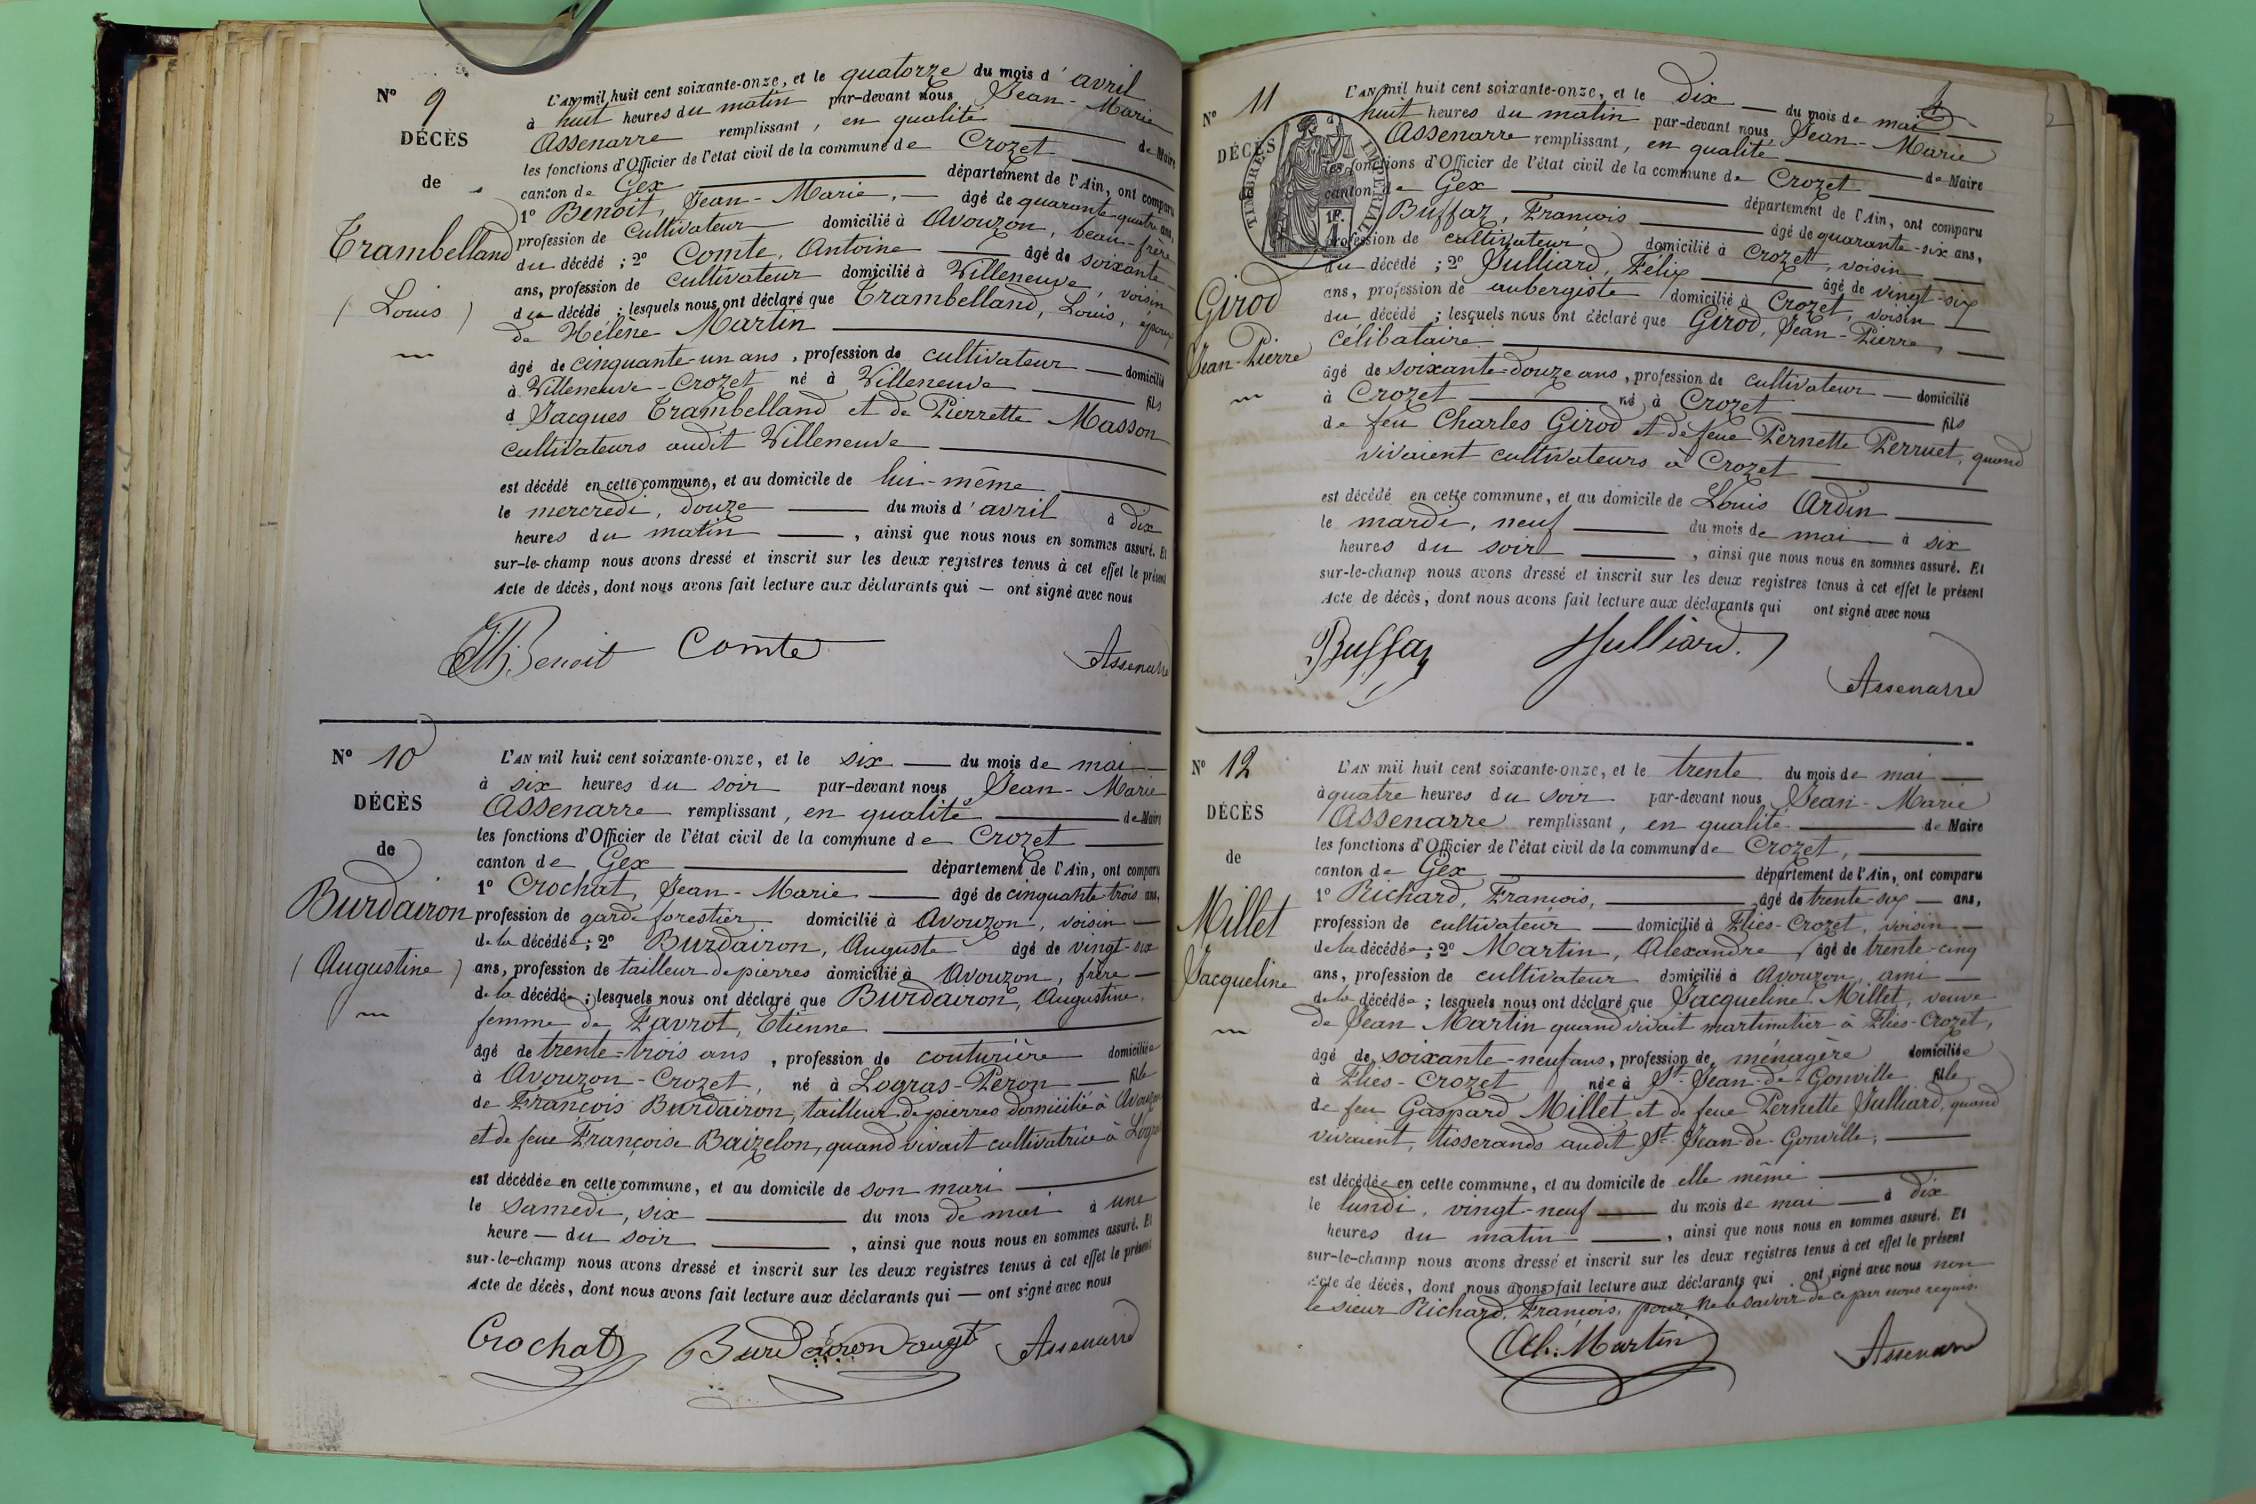 N° 9
DÉCÈS
de
Trambelland
(Louis)
L'AN mil huit cent soixante-onze, et le quatorze du mois d'avril
à huit heures du matin par-devant nous Jean-Marie
Assenarre remplissant, en qualité de Maire
les fonctions d'Officier de l'état civil de la commune de Crozet
canton de Gex département de l'Ain, ont comparu
1° Benoit, Jean-Marie, âgé de quarante-quatre ans,
profession de cultivateur domicilié à Avouzon, beau-frère
du décédé ; 2° Comte, Antoine âgé de soixante
ans, profession de cultivateur domicilié à Villeneuve, voisin
du décédé ; lesquels nous ont déclaré que Trambelland, Louis, époux
de Hélène Martin
âgé de cinquante-un ans, profession de cultivateur domicilié
à Villeneuve-Crozet né à Villeneuve fils
d Jacques Trambelland et de Pierrette Masson
cultivateurs audit Villeneuve
est décédé en cette commune, et au domicile de lui-même
le mercredi, douze du mois d'avril à dix
heures du matin, ainsi que nous nous en sommes assuré. Et
sur-le-champ nous avons dressé et inscrit sur les deux registres tenus à cet effet le présent
Acte de décès, dont nous avons fait lecture aux déclarants qui — ont signé avec nous
JM Benoit Comte Assenarre
N° 10
DÉCÈS
de
Burdairon
(Augustine)
L'AN mil huit cent soixante-onze, et le six du mois de mai
à six heures du soir par-devant nous Jean-Marie
Assenarre remplissant, en qualité de Maire
les fonctions d'Officier de l'état civil de la commune de Crozet
canton de Gex département de l'Ain, ont comparu
1° Crochat, Jean-Marie âgé de cinquante trois ans,
profession de garde forestier domicilié à Avouzon, voisin
de la décédée ; 2° Burdairon, Auguste âgé de vingt-six
ans, profession de tailleur de pierres domicilié à Avouzon, frère
de la décédée ; lesquels nous ont déclaré que Burdairon, Augustine,
femme de Favrot, Etienne
âgé de trente-trois ans, profession de couturière domiciliée
à Avouzon-Crozet, né à Logras-Peron fille
de François Burdairon, tailleur de pierres domicilié à Avouzon
et de feue Françoise Baizelon, quand vivait cultivatrice à Logras
est décédée en cette commune, et au domicile de son mari
le samedi, six du mois de mai à une
heure — du soir, ainsi que nous nous en sommes assuré. Et
sur-le-champ nous avons dressé et inscrit sur les deux registres tenus à cet effet le présent
Acte de décès, dont nous avons fait lecture aux déclarants qui — ont signé avec nous
Crochat Burdairon Augte Assenarre
N° 11
DÉCÈS
TIMBRES IMPERIAL
1F.
Girod
Jean-Pierre
L'AN mil huit cent soixante-onze, et le dix du mois de mai
huit heures du matin par-devant nous Jean-Marie
Assenarre remplissant, en qualité de Maire
les fonctions d'Officier de l'état civil de la commune de Crozet
canton de Gex département de l'Ain, ont comparu
Buffaz, François âgé de quarante-six ans,
profession de cultivateur domicilié à Crozet, voisin
du décédé ; 2° Julliard, Félix âgé de vingt-six
ans, profession de aubergiste domicilié à Crozet, voisin
du décédé ; lesquels nous ont déclaré que Girod, Jean-Pierre,
célibataire
âgé de soixante-douze ans, profession de cultivateur domicilié
à Crozet né à Crozet fils
de feu Charles Girod et de feue Pernette Perruet, quand
vivaient cultivateurs à Crozet
est décédé en cette commune, et au domicile de Louis Ardin
le mardi, neuf du mois de mai à six
heures du soir, ainsi que nous nous en sommes assuré. Et
sur-le-champ nous avons dressé et inscrit sur les deux registres tenus à cet effet le présent
Acte de décès, dont nous avons fait lecture aux déclarants qui ont signé avec nous
Buffaz Julliard. Assenarre
N° 12
DÉCÈS
de
Millet
Jacqueline
L'AN mil huit cent soixante-onze, et le trente du mois de mai
à quatre heures du soir par-devant nous Jean-Marie
Assenarre remplissant, en qualité de Maire
les fonctions d'Officier de l'état civil de la commune de Crozet,
canton de Gex département de l'Ain, ont comparu
1° Richard, François, âgé de trente-six — ans,
profession de cultivateur domicilié à Flies-Crozet, voisin
de la décédée ; 2° Martin, Alexandre âgé de trente-cinq
ans, profession de cultivateur domicilié à Avouzon, ami
de la décédée ; lesquels nous ont déclaré que Jacqueline Millet, veuve
de Jean Martin quand vivait martinetier à Flies-Crozet,
âgé de soixante-neuf ans, profession de ménagère domiciliée
à Flies-Crozet née à St-Jean-de-Gonville fille
de feu Gaspard Millet et de feue Pernette Julliard, quand
vivaient, tisserands audit St-Jean-de-Gonville,
est décédée en cette commune, et au domicile de elle même
le lundi, vingt-neuf du mois de mai à dix
heures du matin, ainsi que nous nous en sommes assuré. Et
sur-le-champ nous avons dressé et inscrit sur les deux registres tenus à cet effet le présent
Acte de décès, dont nous avons fait lecture aux déclarants qui ont signé avec nous non
le sieur Richard, François, pour ne le savoir de ce par nous requis.
Al. Martin Assenarre